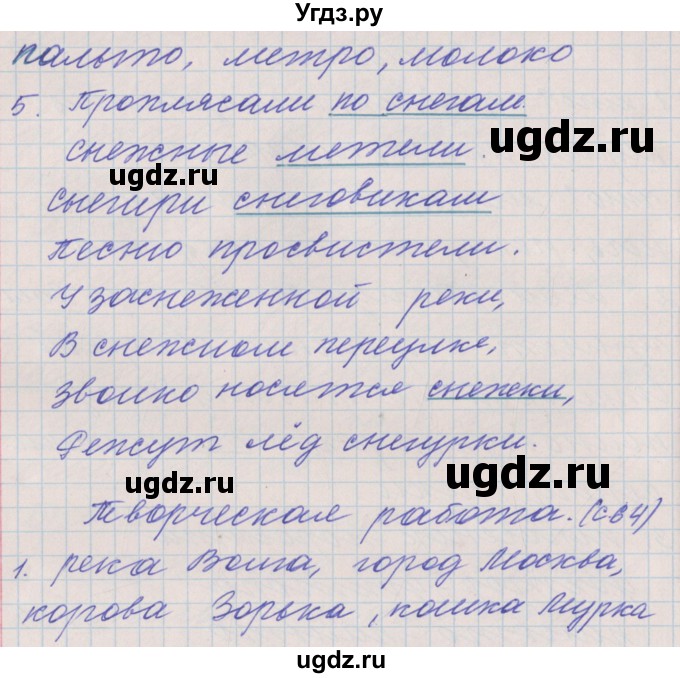 Угдз.ру
пальто, метро, молоко
5. Проплясали по снегам
снежные метели.
ugdz.ru
ugdz.ru
Снегири снеговикам
Песню просвистели.
У заснеженной реки,
В снежном переулке,
Звонко носятся снежки,
Режут лёд снегурки.
ugdz.ru
ugdz.ru
Творческая работа. (с 64)
1. река Волга, город Москва,
корова Зорька, кошка Мурка
ugdz.ru